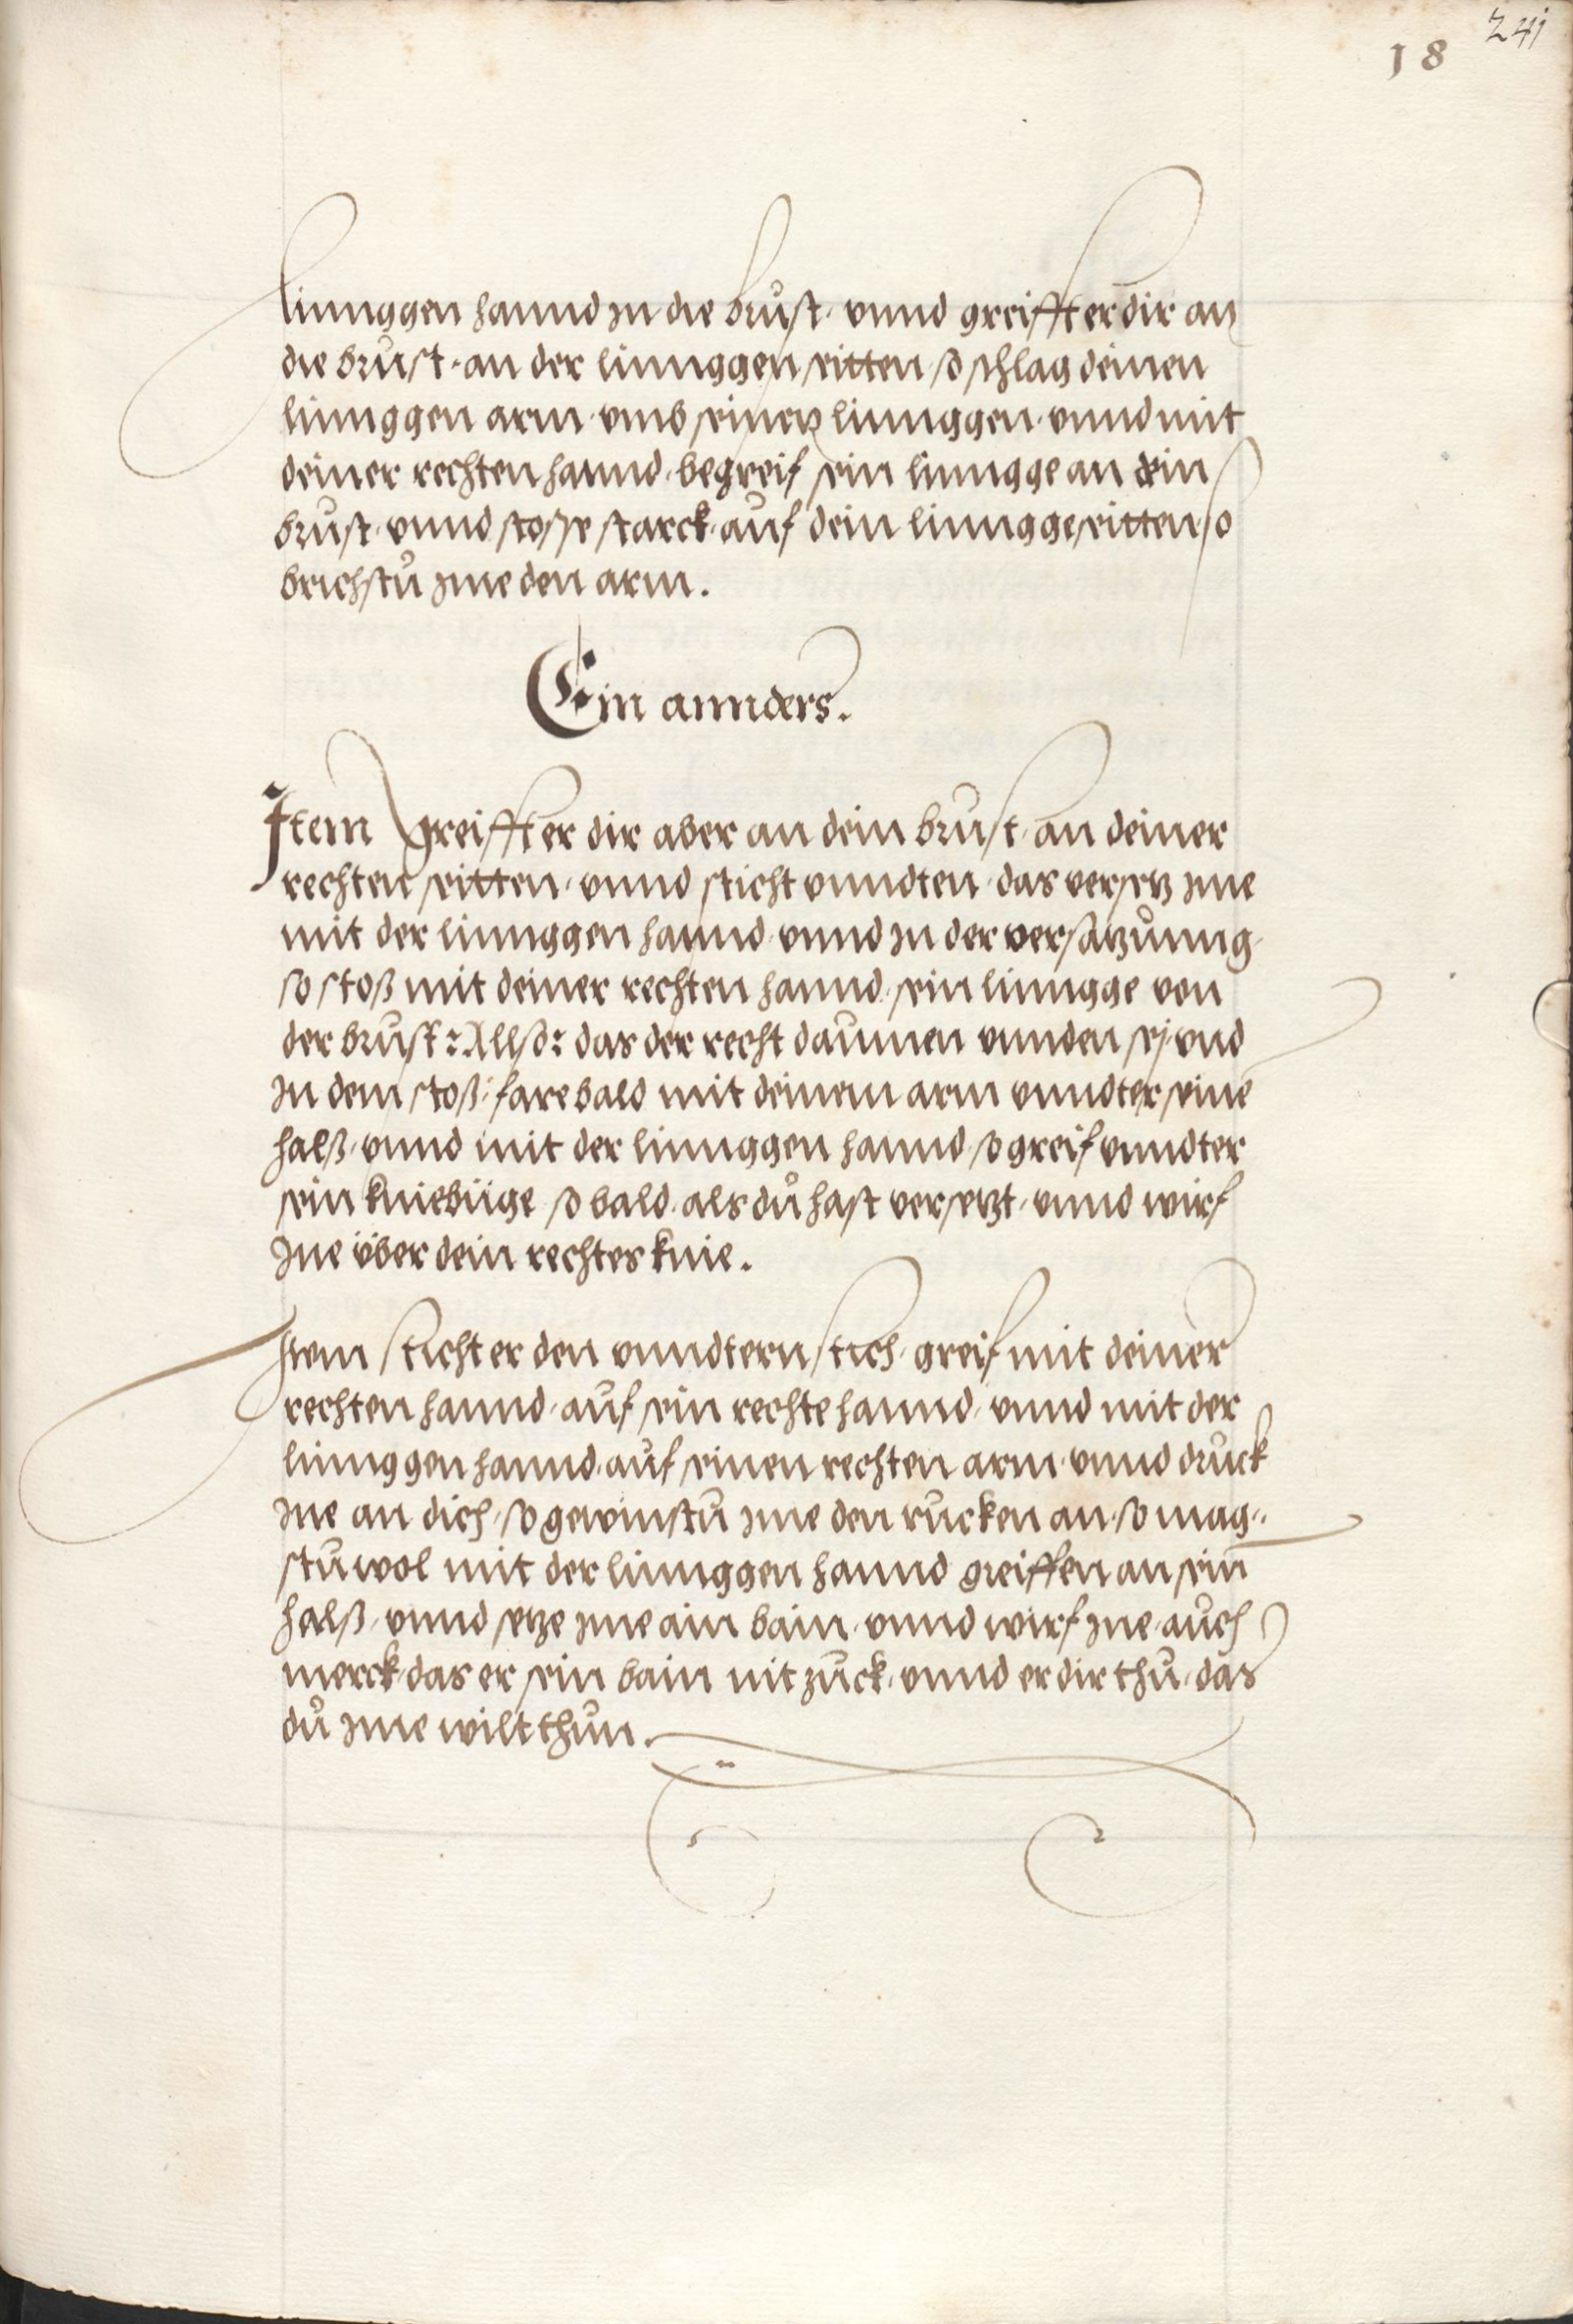 241
18
linnggen hannd in die brust. vnnd greifft er dir an
die brust. an der linnggen seitten. so schlag deinen
linnggen arm. vmb seinen linnggen. vnnd mit
deiner rechten hannd. begreif sein linngge an dein
brust. vnnd stosse starck. auf dein linngge seitten. so
brichstu ime den arm.
Ein annders.
Item greifft er dir aber an dein brust. an deiner
rechten seitten. vnnd sticht vnndten. das versetz ime
mit der linnggen hannd. vnnd in der versatzunng.
so stoß mit deiner rechten hannd. sein linngge von
der brust: Allso: das der recht daumen vnnden sej. vnd
in dem stoß. fare bald mit deinem arm vnndter seinē
halß. vnnd mit der linnggen hannd. so greif vnndter
sein kniebüge so bald. als du hast versetzt. vnnd wirf
ine über dein rechtes knie.
Item sticht er den vnndtern stich. greif mit deiner
rechten hannd. auf sein rechte hannd. vnnd mit der
linnggen hannd. auf seinen rechten arm. vnnd druck
ine an dich. so gewinstu ime den rucken an. so mag=
stu wol mit der linnggen hannd greiffen an sein
halß. vnnd setze ime ain bain. vnnd wirf ine. auch
merck. das er sein bain nit zuck. vnnd er dir thu. das
du ime wilt thun.